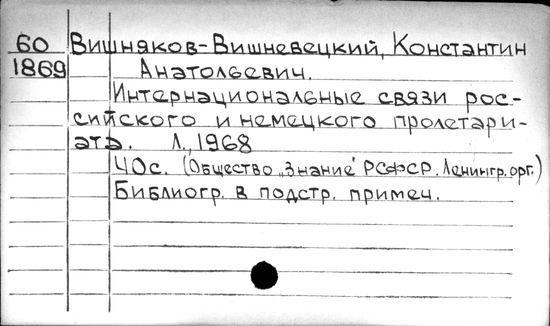 60 Вишняков-Вишневецкий, Константин
1869 Анатольевич.
Интернациональные связи рос-
сийского и немецкого пролетари-
ата. Л., 1968
40с. (Общество „Знание" РСФСР. Ленингр. орг.)
Библиогр. в подстр. примеч.